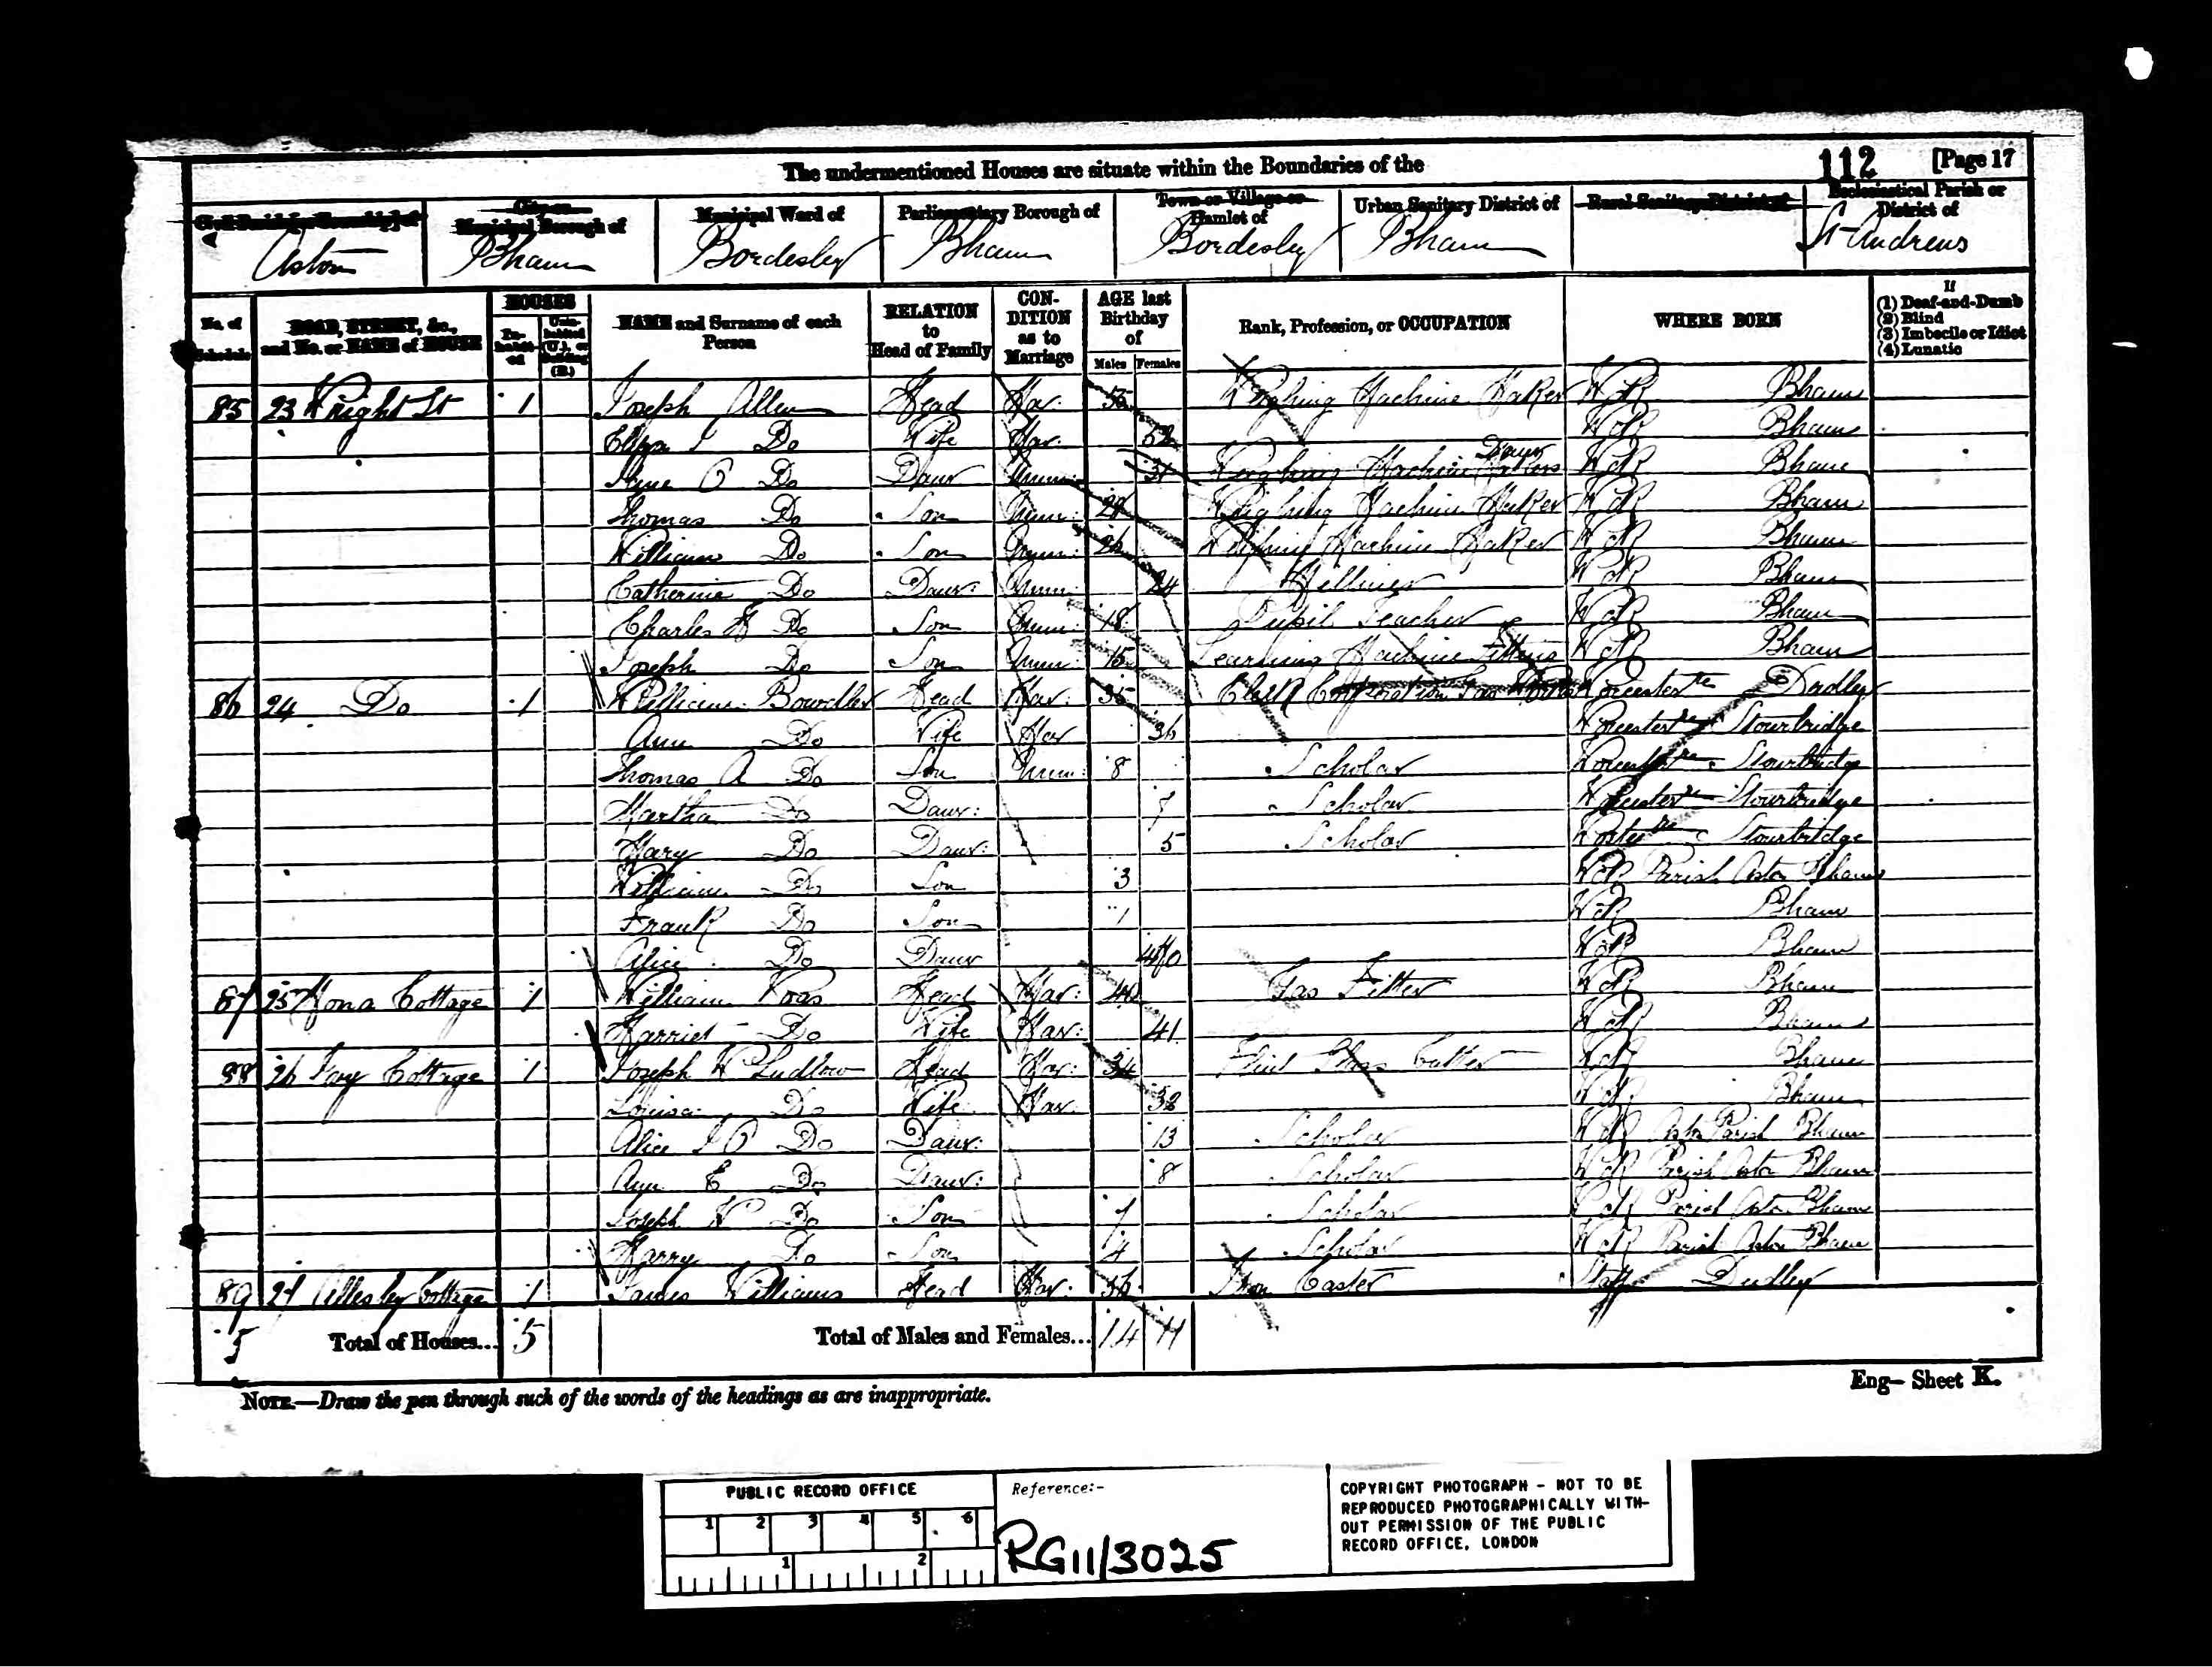 The undermentioned Houses are situate within the Boundaries of the
112 [Page 17
Civil Parish [or Township] of
City or Municipal Borough of
Municipal Ward of
Parliamentary Borough of
Town or Village or Hamlet of
Urban Sanitary District of
Rural Sanitary District of
Ecclesiastical Parish or District of
Aston Bham Bordesley Bham Bordesley Bham St Andrews
No. of Schedule
ROAD, STREET, &c., and No. or NAME of HOUSE
HOUSES
In-habit-ed
Unin-habited (U.), or Building (B.)
NAME and Surname of each Person
RELATION to Head of Family
CON-DITION as to Marriage
AGE last Birthday of
Males Females
Rank, Profession, or OCCUPATION
WHERE BORN
If
(1) Deaf-and-Dumb
(2) Blind
(3) Imbecile or Idiot
(4) Lunatic
85 23 Wright St 1 Joseph Allen Head Mar: Weighing Machine Maker Bham
Do Wife Mar 52 Bham
Do Daur Unm: 31 Weighing Machine Makers Daur Bham
Thomas Do Son Unm: Weighing Machine Maker Bham
William Do Son Unm: 26 Weighing Machine Maker Bham
Catherine Do Daur: Unm: 24 Milliner Bham
Charles Do Son Unm: 18 Pupil Teacher Bham
Joseph Do Son Unm: 15 Learning Machine Fitting Bham
86 24 Do 1 William Bowdler Head Mar: 35 Clerk Corporation Gas Works Worcester re Dudley
Ann Do Wife Mar 36 Worcester re Stourbridge
Thomas A Do Son Unm: 8 Scholar Worcester re Stourbridge
Martha Do Daur: 7 Scholar Worcester re Stourbridge
Mary Do Daur: 5 Scholar Stourbridge
William Do Son 3 Parish Aston Bham
Frank Do Son 1 Bham
Alice Do Daur Bham
87 25 Mona Cottage 1 William Head Mar: Gas Fitter Bham
Harriet Do Wife Mar: 41 Bham
88 26 Ivy Cottage 1 Joseph W Ludlow Head Mar: 34 Flint Glass Cutter Bham
Louisa Do Wife Mar: Bham
Alice Do Daur: 13 Scholar Aston Parish Bham
Ann E Do Daur: 8 Scholar Parish Aston Bham
Joseph W Do Son 7 Scholar Parish Aston Bham
Harry Do Son 4 Scholar Parish Aston Bham
89 27 Allesley Cottage 1 James Williams Head Mar: 36 Iron Caster Staff Dudley
5 Total of Houses... 5 Total of Males and Females... 14 11
NOTE.—Draw the pen through such of the words of the headings as are inappropriate.
Eng- Sheet K.
PUBLIC RECORD OFFICE
1 2 3 4 5 6
1 2
Reference:-
RG11/3025
COPYRIGHT PHOTOGRAPH - NOT TO BE
REPRODUCED PHOTOGRAPHICALLY WITH-
OUT PERMISSION OF THE PUBLIC
RECORD OFFICE, LONDON